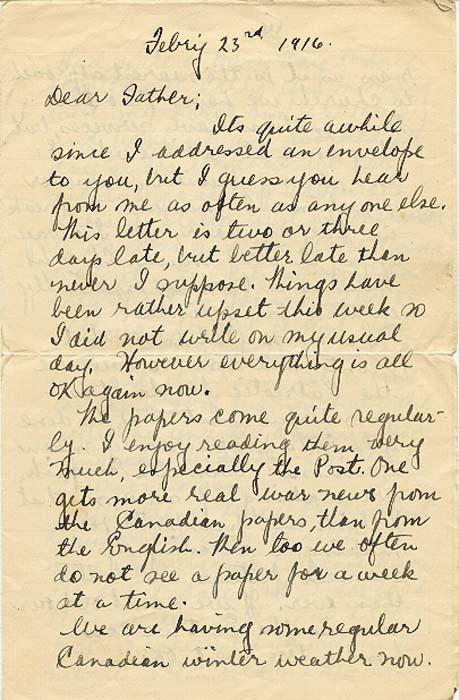 Febry 23rd 1916.
Dear Father;
Its quite awhile
since I addressed an envelope
to you, but I guess you hear
from me as often as any one else.
This letter is two or three
days late, but better late than
never I suppose. Things have
been rather upset this week so
I did not write on my usual
day. However everything is all
OK again now.
The papers come quite regular-
ly. I enjoy reading them very
much, especially the Post. One
gets more real war news from
the Canadian papers, than from
the English. Then too we often
do not see a paper for a week
at a time.
We are having some regular
Canadian winter weather now.